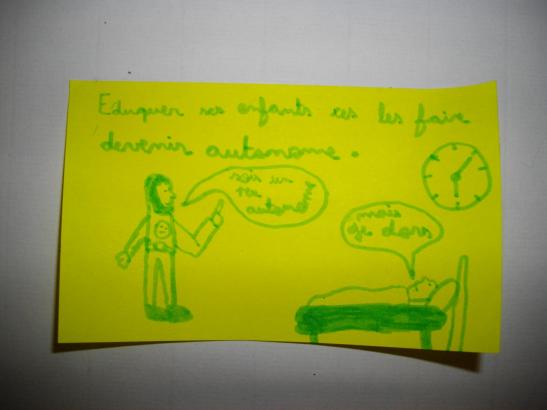 Eduquer ses enfants ces les faire
devenir autonome.
sois un
peu
autonome
mais
je dors